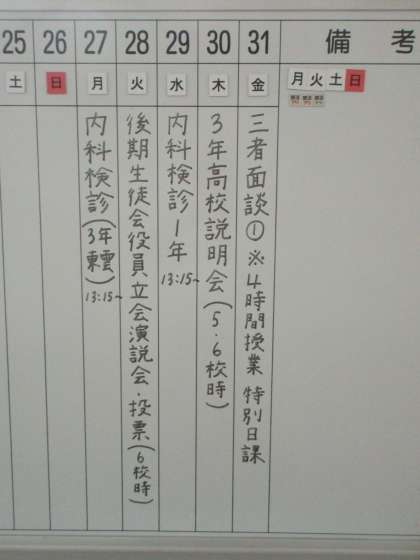 25 26 27 28 29 30 31 備考
土 日 月 火 水 木 金 月 火 土 日
内科検診(3年東雲)
13:15~
後期生徒会役員立会演説会・投票(6校時)
内科検診 1年
13:15~
3年高校説明会(5・6校時)
三者面談① ※4時間授業 特別日課